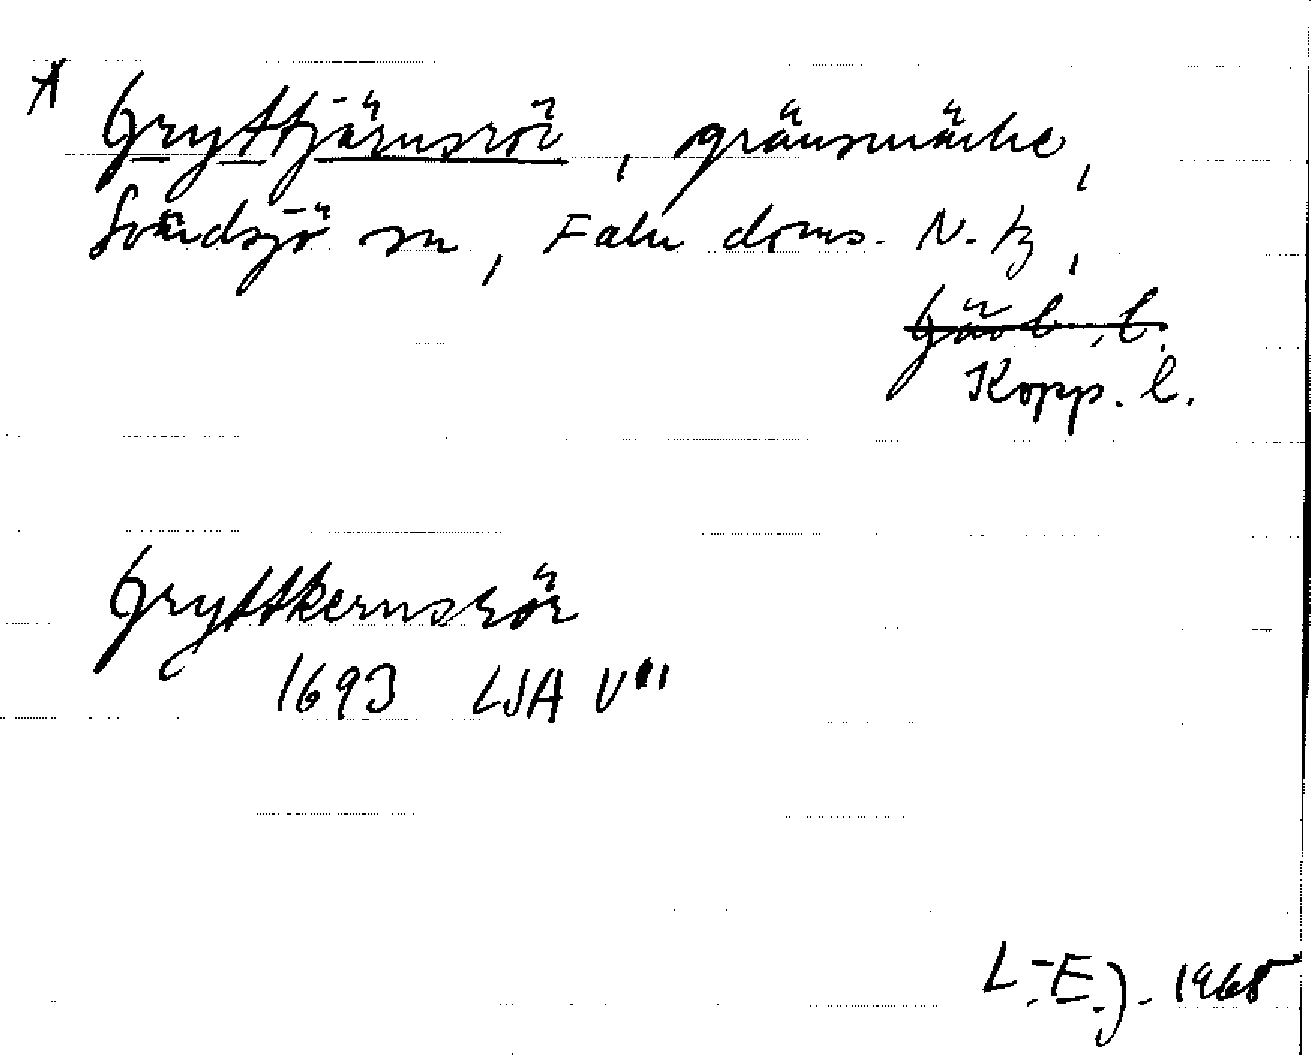 * Gryttjärnsrör, gränsmärke,
Svärdsjö sn, Falu doms. N. tg,
Gävleb. l.
Kopp. l.
Gryttkernsrör
1693 LSA V"
L.-E. J. 1965